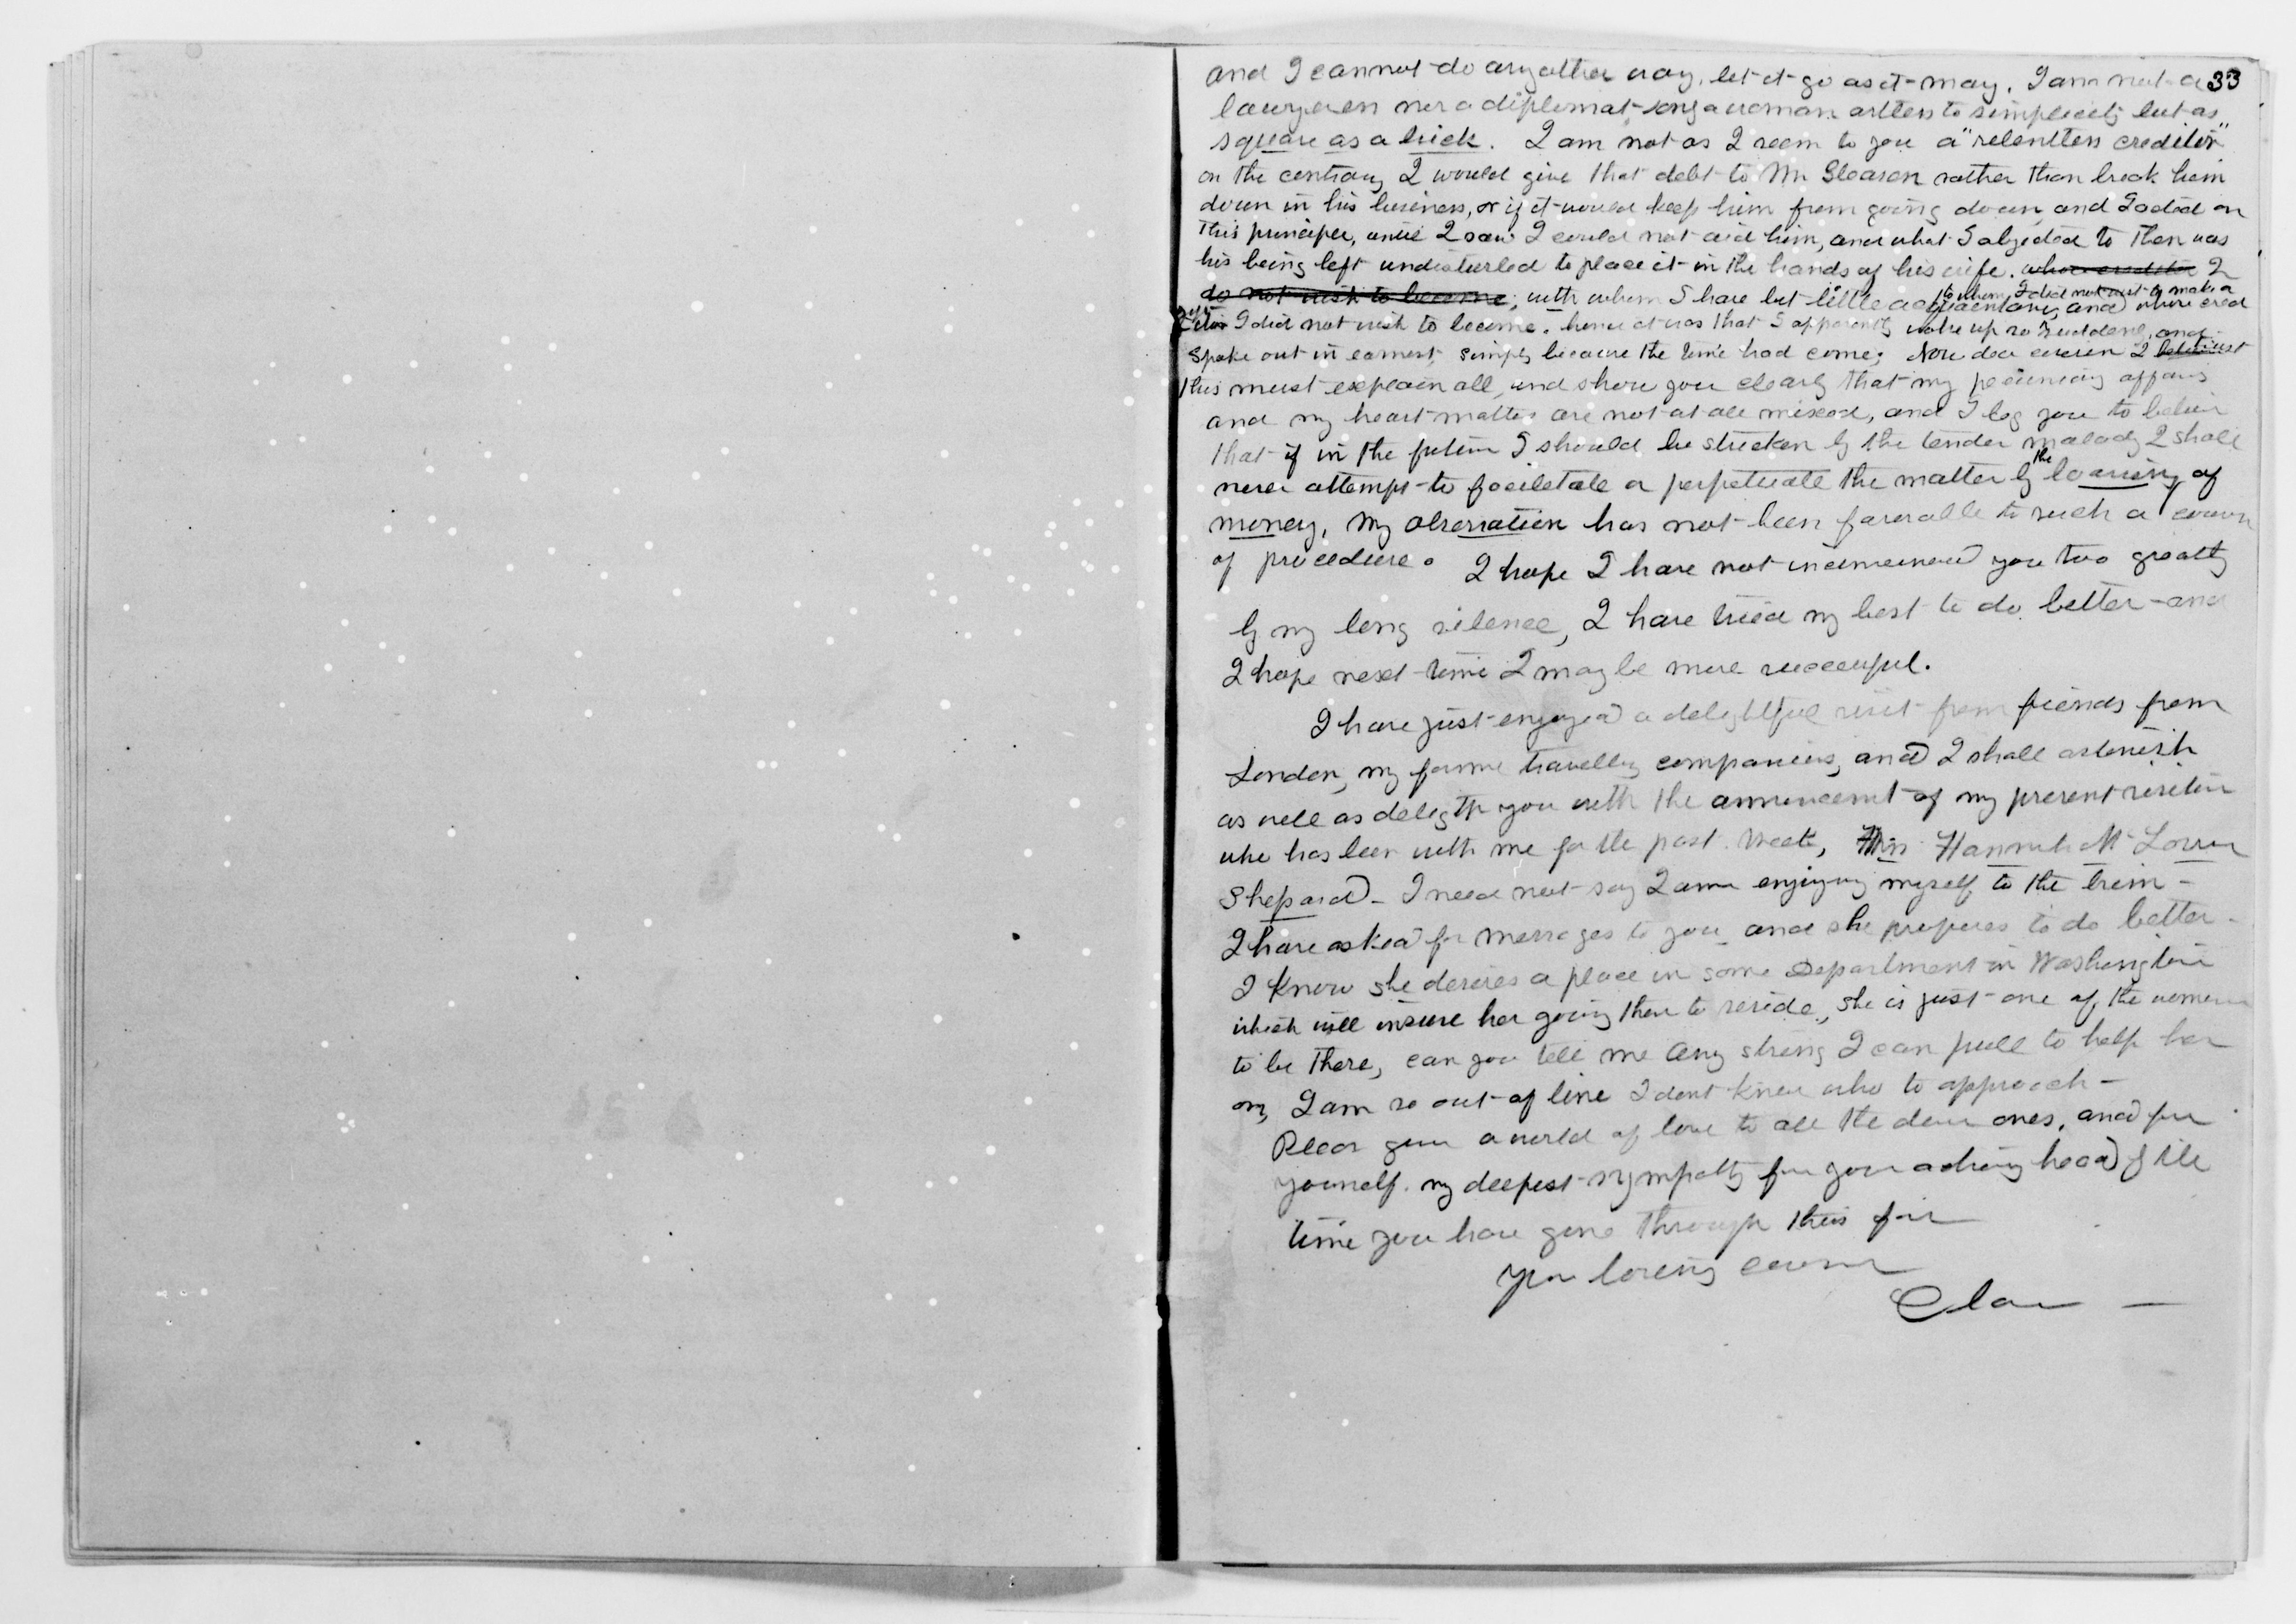 33
and I cannot do any other way, let it go as it may. I am not a
lawyer nor a diplomat, only a woman artless to simplicity but as
square as a brick. I am not as I seem to you a "relentless creditor"
on the contrary I would give that debt to Mr Gleason rather than break him
down in his business, or if it would keep him from going down, and I acted on
this principle, until I saw I could not aid him, and what I objected to then was
his being left undisturbed to place it in the hands of his wife. whose creditor I
do not wish to become, with whom I have but little acquaintance, and whose cred
to whom I did not wish to make a
gift
itor I did not wish to become. hence it was that I apparently woke up so suddenly, and
spoke out in earnest, simply because the time had come; Now dear cousin I trust
this must explain all, and show you clearly that my pecuniary affairs
and my heart matters are not at all mixed, and I beg you to believe
that if in the future I should be stricken by the tender malady I shall
never attempt to facilitate or perpetuate the matter by the loaning of
money, My observation has not been favorable to such a course
of procedure. I hope I have not inconvenienced you too greatly
by my long silence, I have tried my best to do better - and
I hope next time I may be more successful.
I have just enjoyed a delightful visit from friends from
London, my former travelling companions, and I shall astonish
as well as delight you with the announcement of my present visitor
who has been with me for the past week, Miss Hannah M Lorre
Shepard - I need not say I am enjoying myself to the brim -
I have asked for messages to you and she proposes to do better -
I know she desires a place in some Department in Washington
which will insure her going there to reside, she is just one of the women
to be there, can you tell me any string I can pull to help her
on, I am so out of line I dont know who to approach -
Please give a world of love to all the dear ones, and for
yourself. my deepest sympathy for your aching head & the
time you have gone through this far
Your loving cousin
Clara -